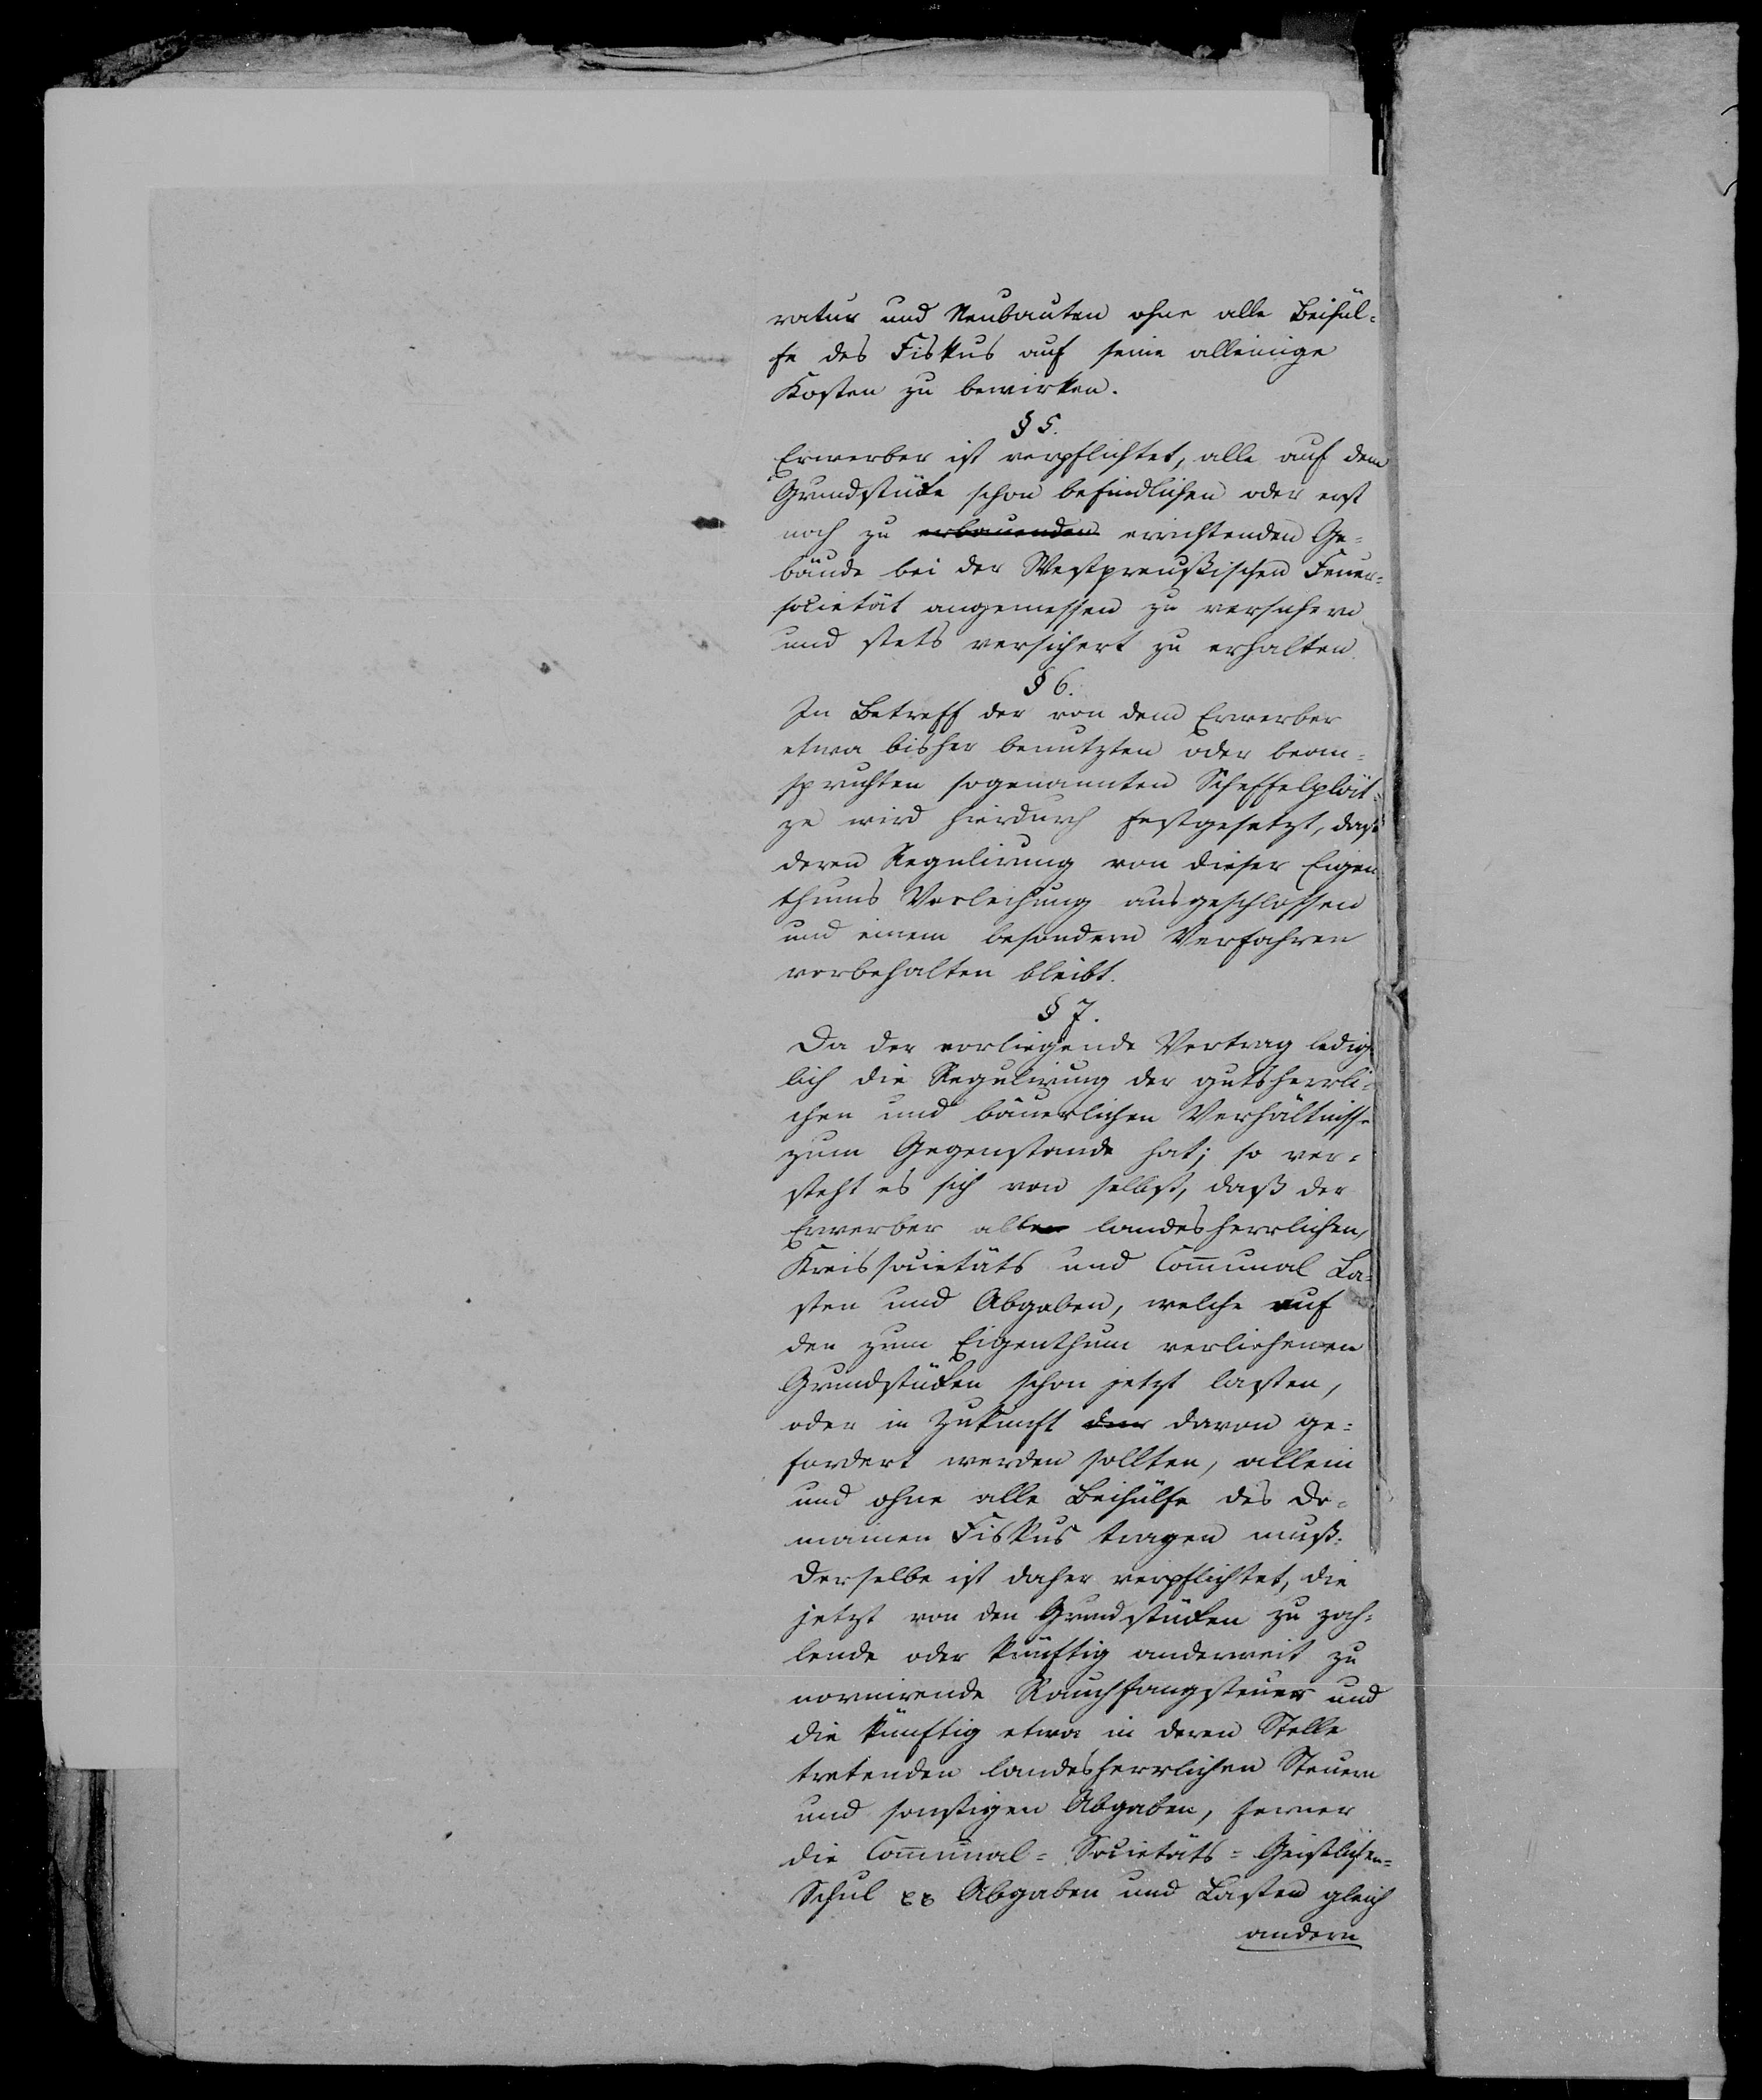 ratur und Neubauten ohne alle Beihül-
fe des Fiskus auf seine alleinige
Kosten zu bewirken.
§ 5.
Erwerber ist verpflichtet, alle auf dem
Grundstücke schon befindlichen oder erst
noch zu erbauenden errichtenden Ge-
bäude bei der Westpreußischen Feuer-
societät angemessen zu versichern
und stets versichert zu erhalten.
§ 6.
In Betreff der von dem Erwerber
etwa bisher benutzten oder bean-
spruchten sogenannten Scheffelplät-
ze wird hierdurch festgesetzt, daß
deren Regulirung von dieser Eigen
thums Verleihung ausgeschlossen
und einem besondern Verfahren
vorbehalten bleibt.
§ 7.
Da der vorliegende Vertrag ledig
lich die Regulirung der gutsherrli-
chen und bäuerlichen Verhältnisse
zum Gegenstande hat; so ver-
steht es sich von selbst, daß der
Erwerber alle landesherrlichen,
Kreissocietäts und Com̄unal La-
sten und Abgaben, welche auf
den zum Eigenthum verliehenen
Grundstücken schon jetzt lasten,
oder in Zukunft den davon ge-
fordert werden sollten, allein
und ohne alle Beihülfe des Do-
mainen Fiskus tragen muß.
Derselbe ist daher verpflichtet, die
jetzt von den Grundstücken zu zah-
lende oder künftig anderweit zu
normirende Rauchfangsteuer und
die künftig etwa in deren Stelle
tretenden landesherrlichen Steuern
und sonstigen Abgaben, ferner
die Com̄unal- Societäts- Geistlichen-
Schul Abgaben und Lasten gleich
andern